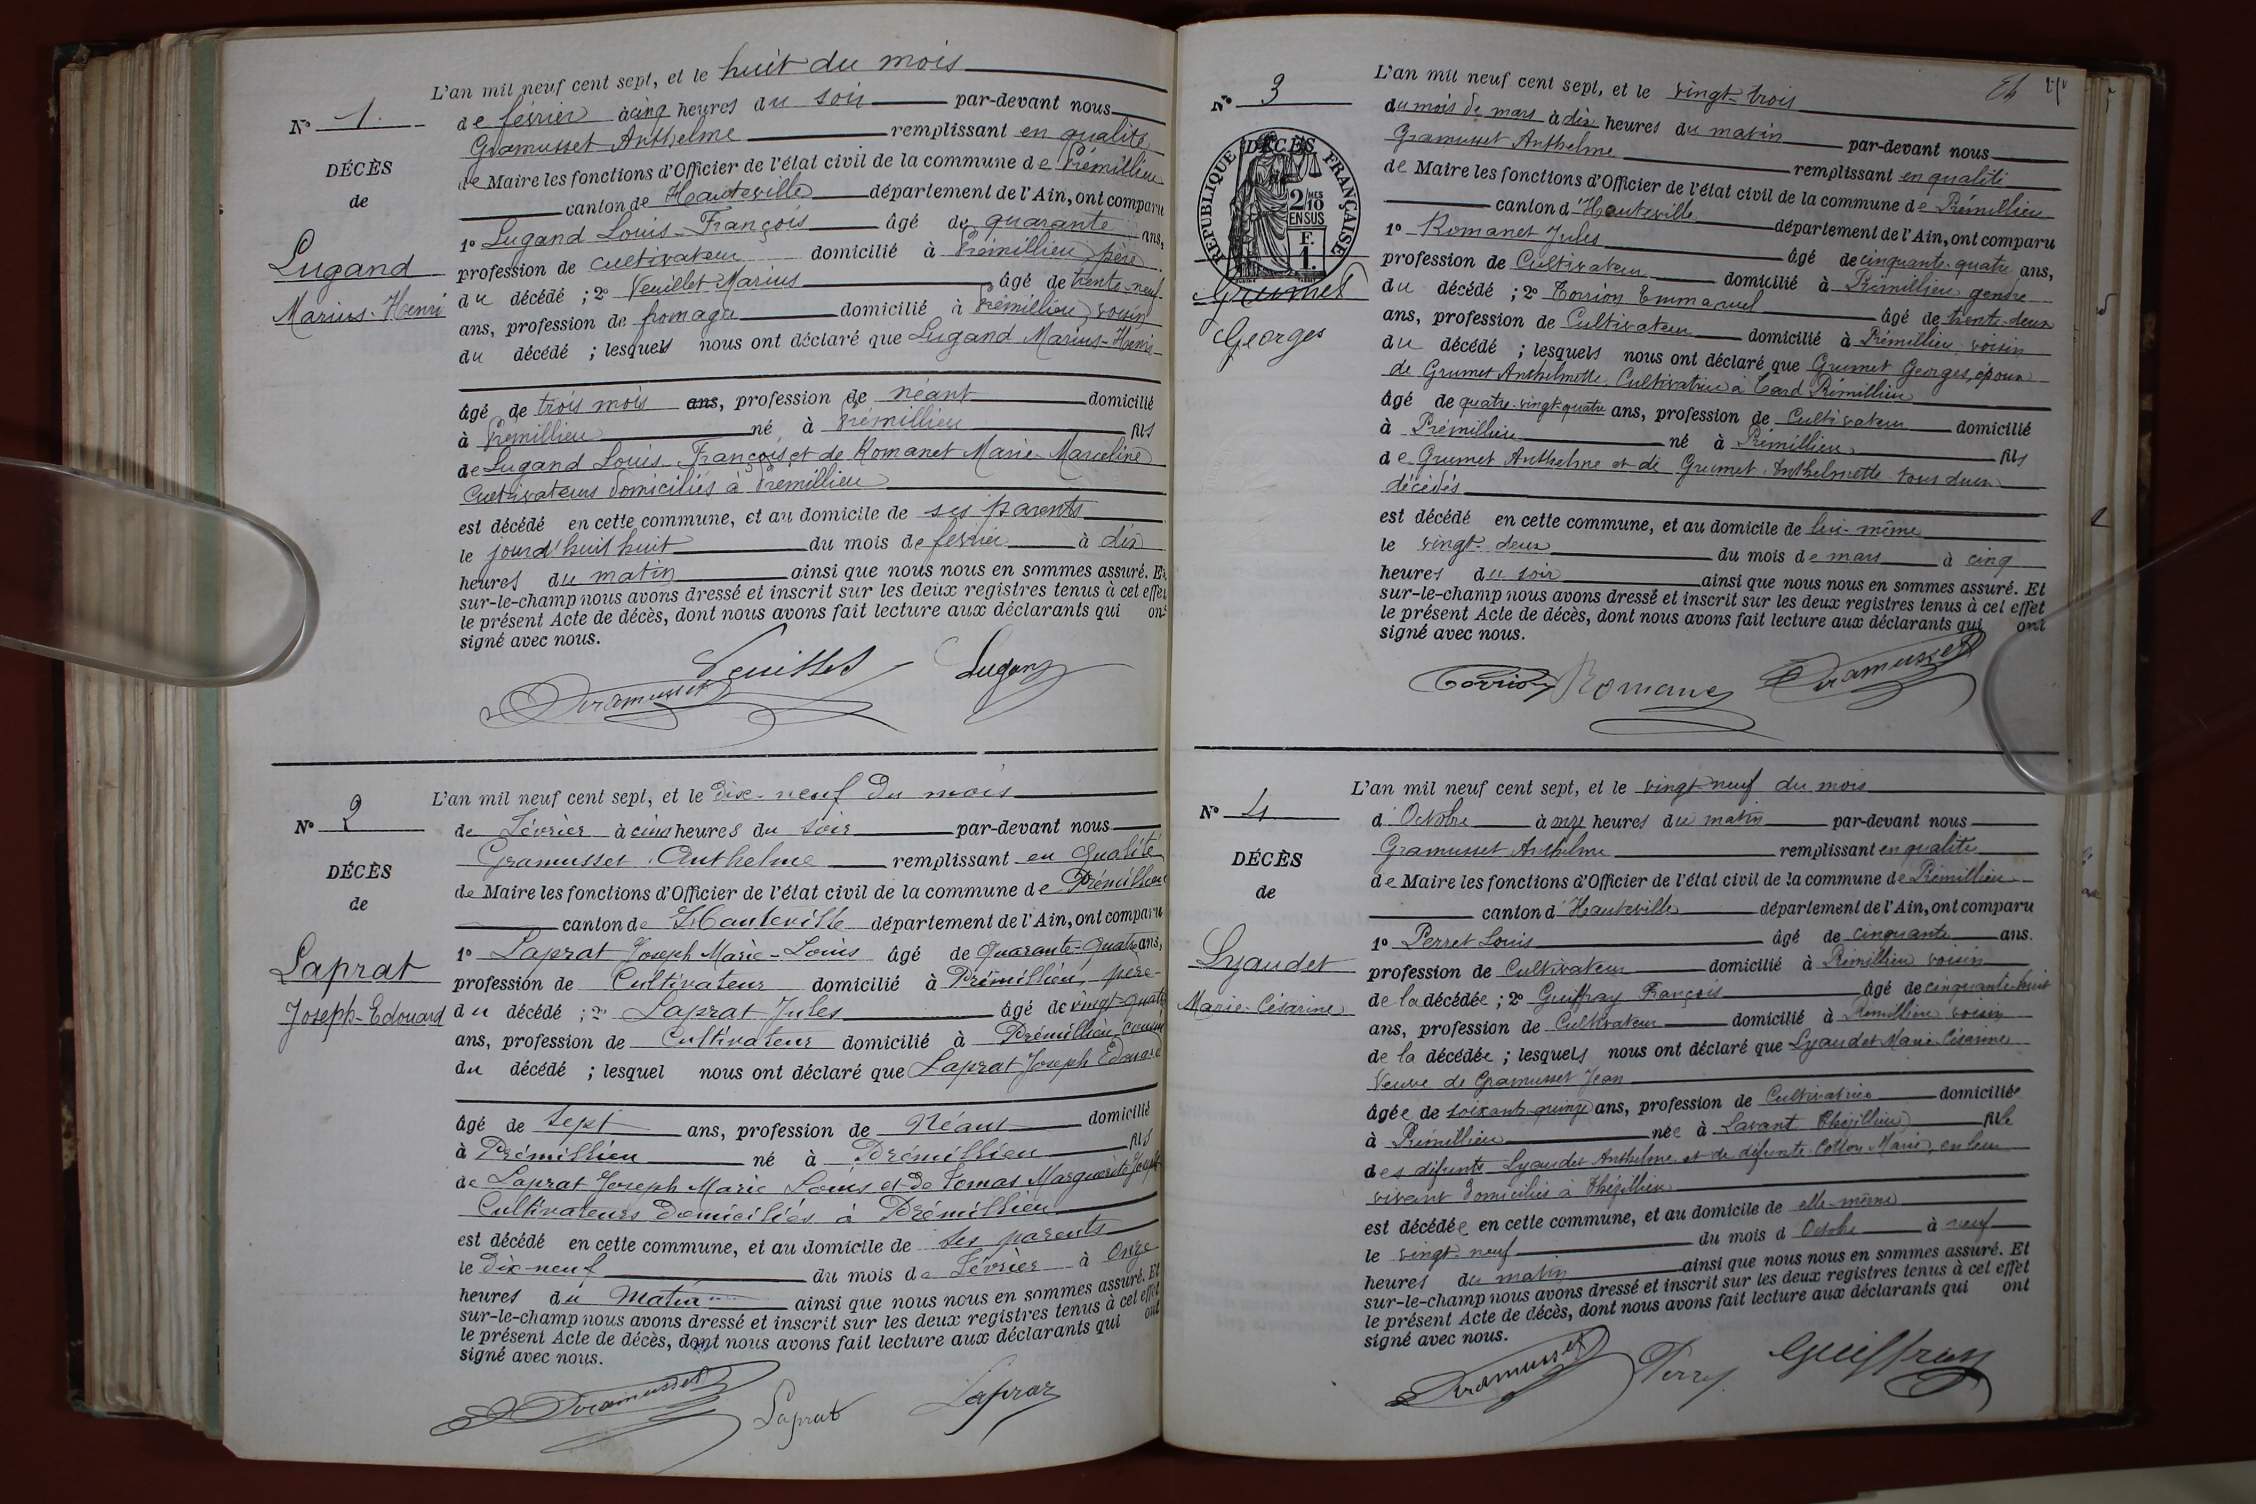 L'an mil neuf cent sept, et le huit du mois
N° 1.
de février à cinq heures du soir par-devant nous
Gramusset Anthelme remplissant en qualité
DÉCÈS
de Maire les fonctions d'Officier de l'état civil de la commune de Prémillieu
de
canton de Hauteville département de l'Ain, ont comparu
1° Lugand Louis-François âgé de quarante ans,
Lugand
profession de cultivateur domicilié à Prémillieu père
Marius-Henri
du décédé ; 2° Veuillet Marius âgé de trente-neuf
ans, profession de fromager domicilié à Prémillieu, voisin
du décédé ; lesquels nous ont déclaré que Lugand Marius-Henri
âgé de trois mois ans, profession de néant domicilié
à Prémillieu né à Prémillieu fils
de Lugand Louis-François et de Romanet Marie-Marceline
Cultivateurs domiciliés à Prémillieu
est décédé en cette commune, et au domicile de ses parents
le jourd'huit huit du mois de février à dix
heures du matin ainsi que nous nous en sommes assuré. Et
sur-le-champ nous avons dressé et inscrit sur les deux registres tenus à cet effet
le présent Acte de décès, dont nous avons fait lecture aux déclarants qui ont
signé avec nous.
Veuillet Lugand
Gramusset
L'an mil neuf cent sept, et le dix-neuf du mois
N° 2
de Février à cinq heures du soir par-devant nous
Gramusset Anthelme remplissant en qualité
DÉCÈS
de Maire les fonctions d'Officier de l'état civil de la commune de Prémillieu
de
canton de Hauteville département de l'Ain, ont comparu
1° Laprat Joseph Marie-Louis âgé de quarante-quatre ans,
Laprat
profession de Cultivateur domicilié à Prémillieu, père
Joseph-Edouard
du décédé ; 2° Laprat Jules âgé de vingt-quatre
ans, profession de Cultivateur domicilié à Prémillieu, cousin
du décédé ; lesquel nous ont déclaré que Laprat Joseph Edouard
âgé de sept ans, profession de Néant domicilié
à Prémillieu né à Prémillieu fils
de Laprat Joseph Marie Louis et de Tomas Marguerite Joseph
Cultivateurs Domiciliés à Prémillieu
est décédé en cette commune, et au domicile de ses parents
le Dix-neuf du mois de Février à Onze
heures du Matin ainsi que nous nous en sommes assuré. Et
sur-le-champ nous avons dressé et inscrit sur les deux registres tenus à cet effet
le présent Acte de décès, dont nous avons fait lecture aux déclarants qui ont
signé avec nous.
Gramusset Laprat Laprat
L'an mil neuf cent sept, et le vingt-trois
N° 3
du mois de mars à dix heures du matin par-devant nous
Gramusset Anthelme remplissant en qualité
RÉPUBLIQUE FRANÇAISE
DÉCÈS
2/10 MES
EN SUS
F.
1.
de Maire les fonctions d'Officier de l'état civil de la commune de Prémillieu
canton d'Hauteville département de l'Ain, ont comparu
1° Romanet Jules âgé de cinquante-quatre ans,
profession de Cultivateur domicilié à Prémillieu gendre
Grumet
du décédé ; 2° Torrion Emmanuel âgé de trente-deux
Georges
ans, profession de Cultivateur domicilié à Prémillieu voisin
du décédé ; lesquels nous ont déclaré que Grumet Georges, époux
de Grumet Anthelmette Cultivatrice à Prémillieu
âgé de quatre-vingt-quatre ans, profession de Cultivateur domicilié
à Prémillieu né à Prémillieu fils
de Grumet Anthelme et de Grumet Anthelmette tous deux
décédés
est décédé en cette commune, et au domicile de lui-même
le vingt-deux du mois de mars à cinq
heures du soir ainsi que nous nous en sommes assuré. Et
sur-le-champ nous avons dressé et inscrit sur les deux registres tenus à cet effet
le présent Acte de décès, dont nous avons fait lecture aux déclarants qui ont
signé avec nous.
Torrion Romanet Gramusset
L'an mil neuf cent sept, et le vingt-neuf du mois
N° 4
d'Octobre à onze heures du matin par-devant nous
Gramusset Anthelme remplissant en qualité
DÉCÈS
de Maire les fonctions d'Officier de l'état civil de la commune de Prémillieu
de
canton d'Hauteville département de l'Ain, ont comparu
1° Perret Louis âgé de cinquante ans.
Lyaudet
profession de Cultivateur domicilié à Prémillieu voisin
Marie-Césarine
de la décédée ; 2° Guiffray François âgé de cinquante-huit
ans, profession de Cultivateur domicilié à Prémillieu voisin
de la décédée ; lesquels nous ont déclaré que Lyaudet Marie Césarine
Veuve de Gramusset Jean
âgée de soixante-quinze ans, profession de Cultivatrice domiciliée
à Prémillieu née à Lavant Thézillieu fille
des défunts Lyaudet Anthelme et de défunte Cotton Marie, en leur
vivant domiciliés à Thézillieu
est décédée en cette commune, et au domicile de elle-même
le vingt-neuf du mois d'Octobre à neuf
heures du matin ainsi que nous nous en sommes assuré. Et
sur-le-champ nous avons dressé et inscrit sur les deux registres tenus à cet effet
le présent Acte de décès, dont nous avons fait lecture aux déclarants qui ont
signé avec nous.
Gramusset Perret Guiffray